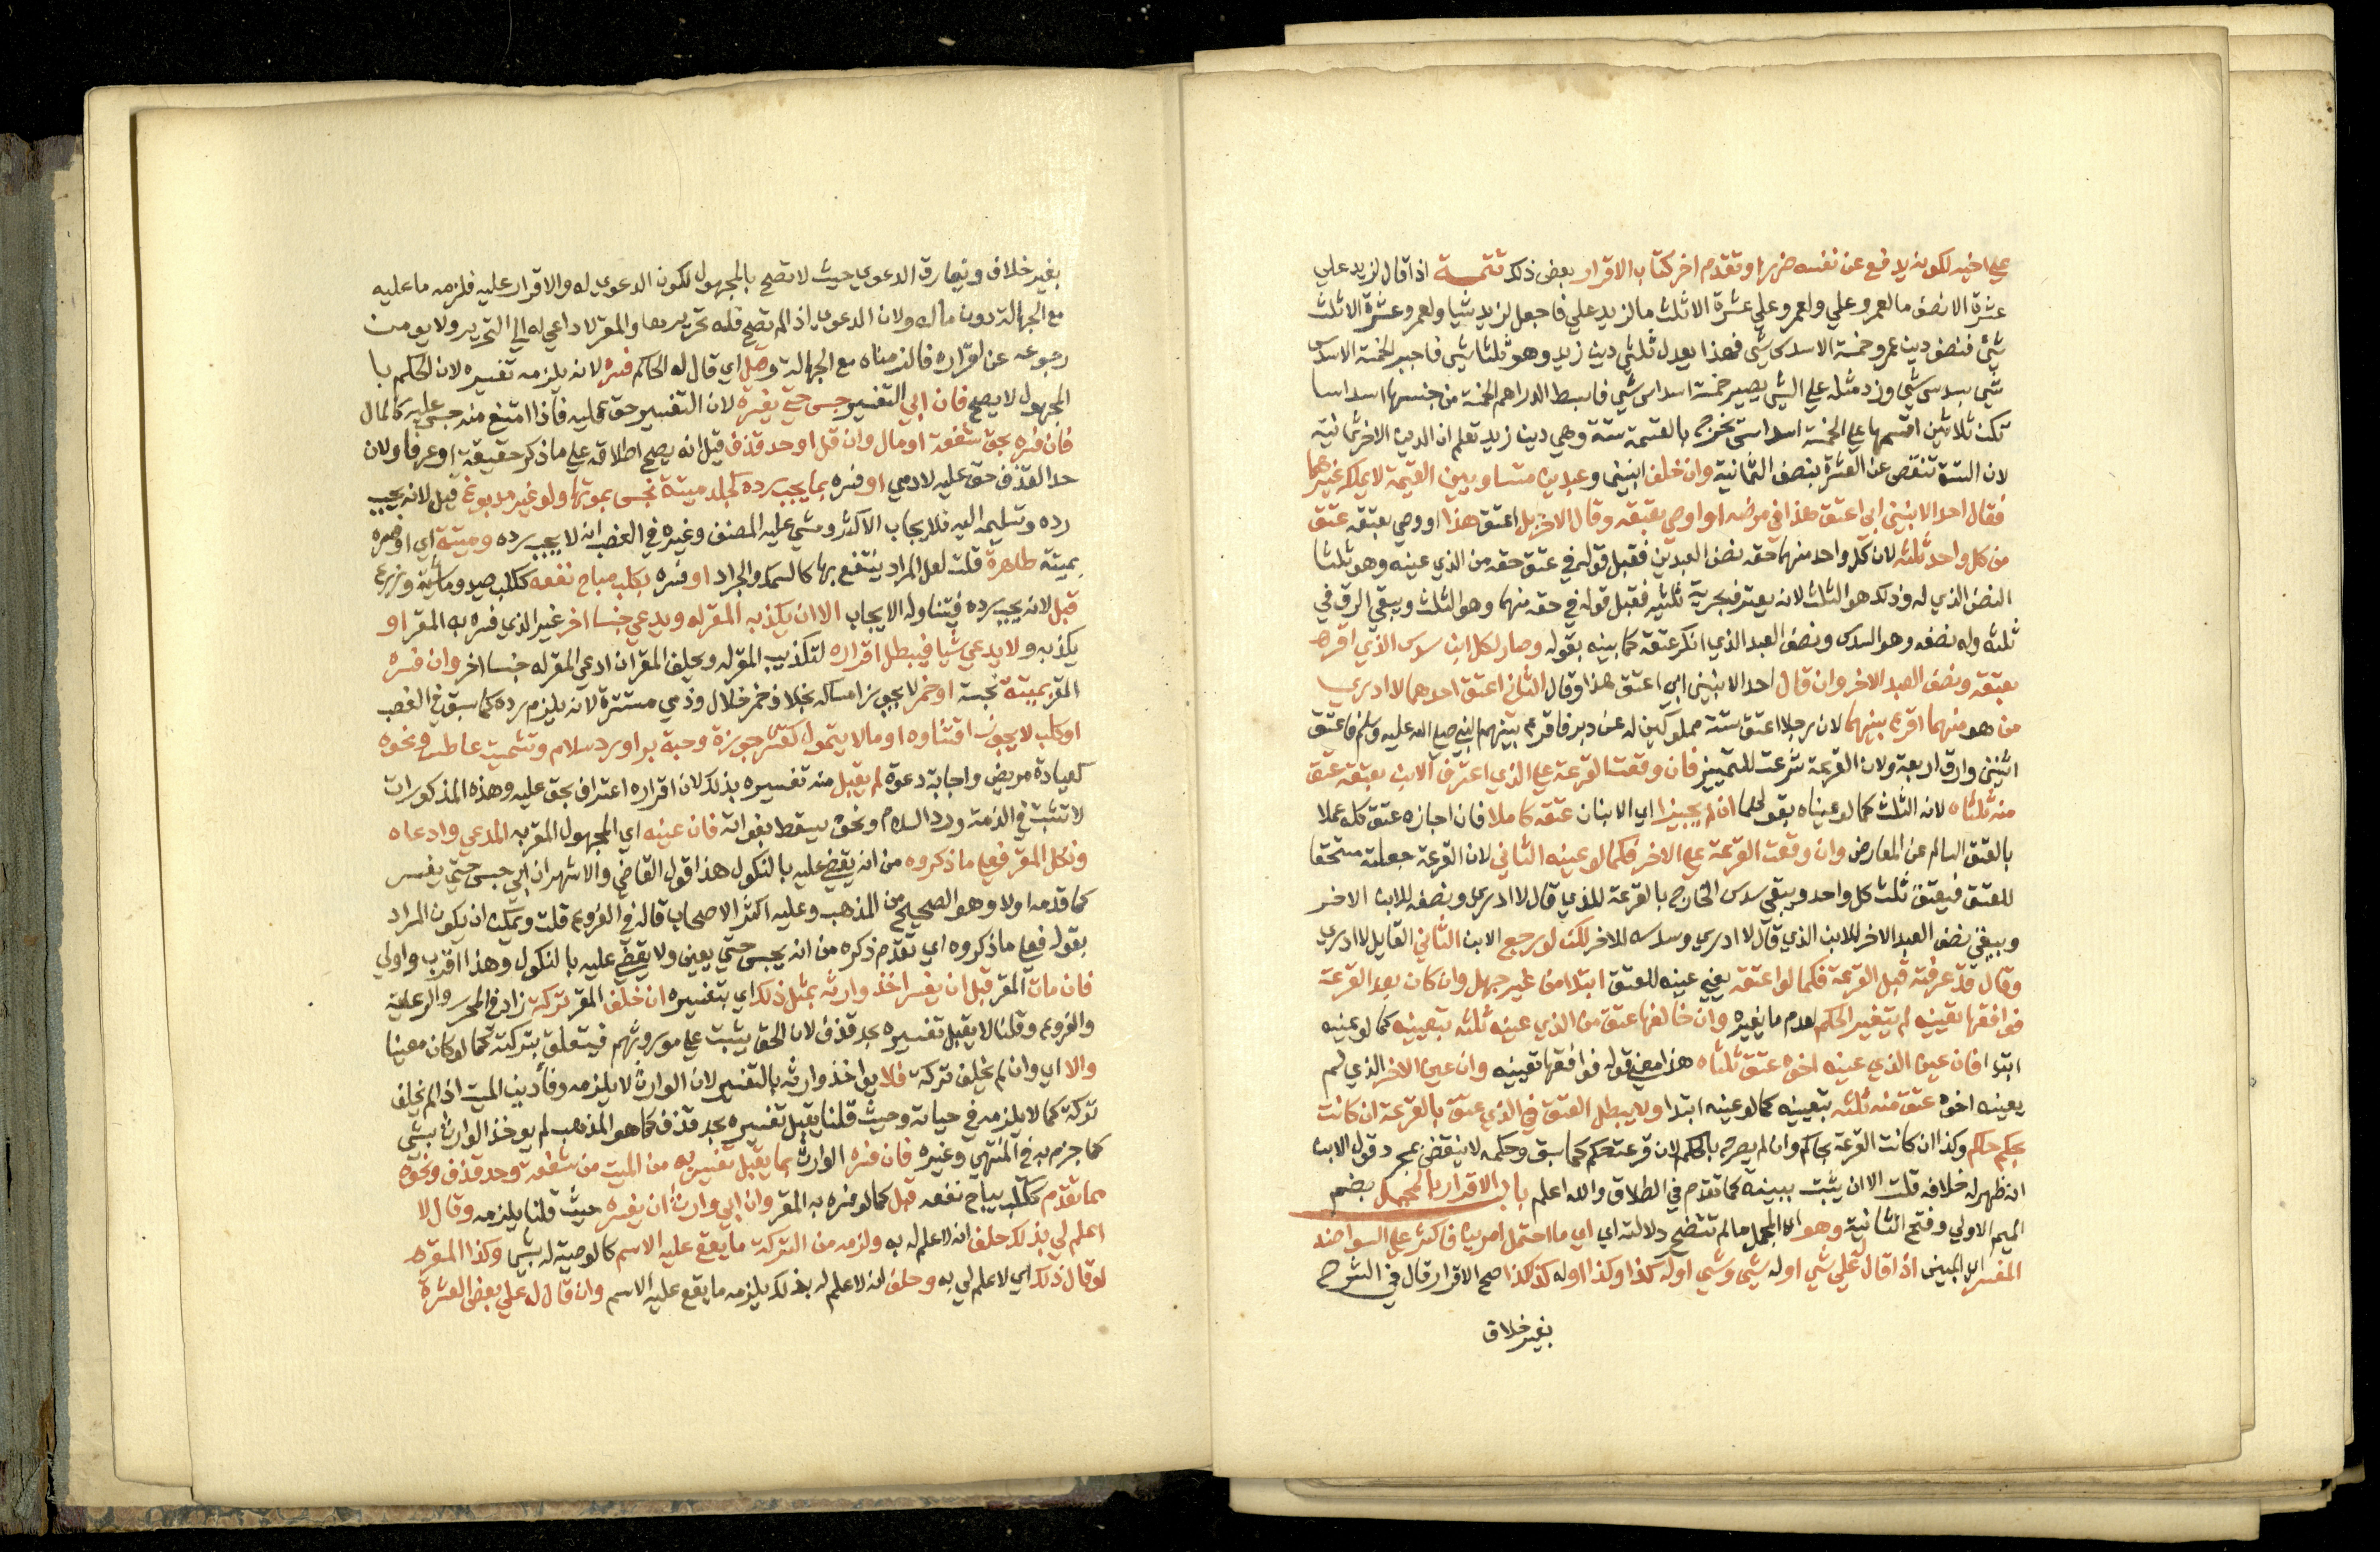 علي اخيه لكونه يدفع عن نفسه ضررا وتقدم اخر كتاب الاقرار بعض ذلك تتمة اذا قال لزيد علي
عشرة الا نصف ما لعمرو علي ولعمرو علي عشرة الا ثلث ما لزيد علي فاجعل لزيد شيا ولعمرو عشرة الا ثلث
شئ فنصف دين عمرو خمسة الا سدس شي فهذا يعدل ثلثي دين زيد وهو ثلثا شي فاجبر الخمسة الا سدس
شي بسدس شي وزد مثله علي الشي يصير خمسة اسداس شي فابسط الدراهم الخمسة من جنسها اسداسا
تكن ثلاثين اقسمها علي الخمسة اسداس تخرج بالقسمة ستة وهي دين زيد تعلم ان الدين الاخر ثمانية
لان الستة تنقص عن العشرة بنصف الثمانية وان خلف ابنين وعبدين متساويين القيمة لا يملك غيرهما
فقال احد الابنين ابي اعتق هذا في مرضه او اوصي بعتقه وقال الاخر بل اعتق هذا او وصي بعتقه عتق
من كل واحد ثلثه لان كل واحد منهما حقه نصف العبدين فقبل قوله في عتق حقه من الذي عينه وهو ثلثا
النصف الذي له وذلك هو الثلث لانه يعترف بحرية ثلثيه فقبل قوله في حقه منهما وهو الثلث ويبقي الرق في
ثلثه وله نصفه وهو السدس ونصف العبد الذي انكر عتقه كما بينه بقوله وصار لكل ابن سدس الذي اقر
بعتقه ونصف العبد الاخر وان قال احد الابنين ابي اعتق هذا وقال الثاني اعتق احدهما لا ادري
من هو منهما اقرع بينهما لان رجلا اعتق ستة مملوكين له عن دبر فاقرع بينهم النبي صلي الله عليه وسلم فاعتق
اثنين وارق اربعة ولان القرعة شرعت للتمييز فان وقعت القرعة علي الذي اعترف الابن بعتقه عتق
منه ثلثاه لانه الثلث كما لو عيناه بقولهما ان لم يجيزا اي الابنان عتقه كاملا فان اجازه عتق كله عملا
بالعتق السالم عن المعارض وان وقعت القرعة علي الاخر فكما لو عينه الثاني لان القرعة جعلته مستحقا
للعتق فيعتق ثلث كل واحد ويبقي سدس الخارج بالقرعة للذي قال لا ادري ونصفه للابن الاخر
ويبقي نصف العبد الاخر للابن الذي قال لا ادري وسدسه للاخر لكن لو رجع الابن الثاني القايل لا ادري
وقال قد عرفته قبل القرعة فكما لو اعتقه يعني عينه للعتق ابتدا من غير جهل وان كان بعد القرعة
فوافقها تعيينه لم يتغير الحكم لعدم ما يغيره وان خالفها عتق من الذي عينه ثلثه بتعيينه كما لو عينه
ابتدا فان عين الذي عينه اخوه عتق ثلثاه هذا معني قوله فوافقها تعيينه وان عين الاخر الذي لم
يعينه اخوه عتق منه ثلثه بتعيينه كما لو عينه ابتدا ولا يبطل العتق في الذي عتق بالقرعة ان كانت
بحكم حاكم وكذا ان كانت القرعة بحاكم وان لم يصرح بالحكم لان قرعته حكم كما سبق وحكمه لا ينقض بمجرد قول الابن
انه ظهر له خلافه قلت الا ان يثبت ببينة كما تقدم في الطلاق والله اعلم باب الاقرار بالمجمل بضم
الميم الاولي وفتح الثانية وهو اي المجمل ما لم تتضح دلالته اي اي ما احتمل امرين فاكثر علي السوا ضد
المفسر اي المبين اذا قال له علي شي او له شي وشي او له كذا وكذا او له كذا كذا صح الاقرار قال في الشرح
بغير خلاف
بغير خلاف ويفارق الدعوي حيث لا تصح بالمجهول لكون الدعوي له والاقرار عليه فلزمه ما عليه
مع الجهالة دون ما له ولان الدعوي اذا لم تصح فله تحريرها والمقر لا داعي له الي التحرير ولا يومن
رجوعه عن اقراره فالزمناه مع الجهالة وصل اي قال له الحاكم فسره لانه يلزمه تفسيره لان الحكم با
المجهول لا يصح فان ابي التفسير حبس حتي يفسره لان التفسير حق عليه فاذا امتنع منه حبس عليه كالمال
فان فسره بحق شفعة او مال وان قل او حد قذف قبل انه يصح اطلاقه علي ما ذكر حقيقة او عرفا ولان
حد القذف حق عليه لادمي او فسره بما يجب رده كجلد ميتة نجس بموتها ولو غير مدبوغ قبل لانه يجب
رده وتسليمه اليه فلا يجاب الاكثر ومشي عليه المصنف وغيره في الغصب انه لا يجب رده وميتة اي او فسره
بميتة طاهرة قلت لعل المراد ينتفع بها كالسمك والجراد او فسره بكلب مباح نفعه ككلب صيد وماشية وزرع
قبل لانه يجب رده فيتناوله الايجاب الا ان يكذبه المقر له ويدعي جنسا اخر غير الذي فسره به المقر او
يكذبه ولا يدعي شيا فيبطل اقراره لتكذيب المقر له ويحلف المقر ان ادعي المقر له جنسا اخر وان فسره
المقر بميتة نجسة او خمر لا يجوز امساكه بخلاف خمر خلال وذمي مستترة لانه يلزم رده كما سبق في الغصب
او كلب لا يجوز اقتناوه او ما لا يتمول كقشر جوزة وحبة بر او رد سلام وتشميت عاطس ونحوه
كعيادة مريض واجابة دعوة لم يقبل منه تفسيره بذلك لان اقراره اعتراف بحق عليه وهذه المذكورات
لا تثبت في الذمة ورد السلام ونحوه يسقط بفواته فان عينه اي المجهول المقر به المدعي وادعاه
ونكل المقر فعلي ما ذكروه من انه يقضي عليه بالنكول هذا قول القاضي والاشهر ان ابي حبس حتي يفسر
كما قدمه اولا وهو الصحيح من المذهب وعليه اكثر الاصحاب قاله في الفروع قلت ويمكن ان يكون المراد
بقوله فعلي ما ذكروه اي تقدم ذكره من انه يحبس حتي يعين ولا يقضي عليه بالنكول وهذا اقرب واولي
فان مات المقر قبل ان يفسر اخذ وارثه بمثل ذلك اي بتفسيره ان خلف المقر تركة زاد في المحرر والرعاية
والفروع وقلنا لا يقبل تفسيره بحد قذف لان الحق يثبت علي موروثهم فيتعلق بتركته كما لو كان معينا
والا اي وان لم يخلف تركة فلا يواخذ وارثه بالتفسير لان الوارث لا يلزمه وفا دين الميت اذا لم يخلف
تركة كما لا يلزمه في حياته وحيث قلنا يقبل تفسيره بحد قذف كما هو المذهب لم يوخذ الوارث بشي
كما جزم به في المنتهي وغيره فان فسره الوارث بما يقبل تفسير به من الميت من شفعة وحد قذف ونحوه
مما تقدم ككلب يباح نفعه قبل كما لو فسره به المقر وان ابي وارث ان يفسره حيث قلنا يلزمه وقال لا
اعلم لي بذلك حلف انه لا علم له به ولزمه من التركة ما يقع عليه الاسم كالوصية له بشي وكذا المقر
لو قال ذلك اي لا علم لي به وحلف انه لا علم له بذلك يلزمه ما يقع عليه الاسم وان قال له علي بعض العشرة